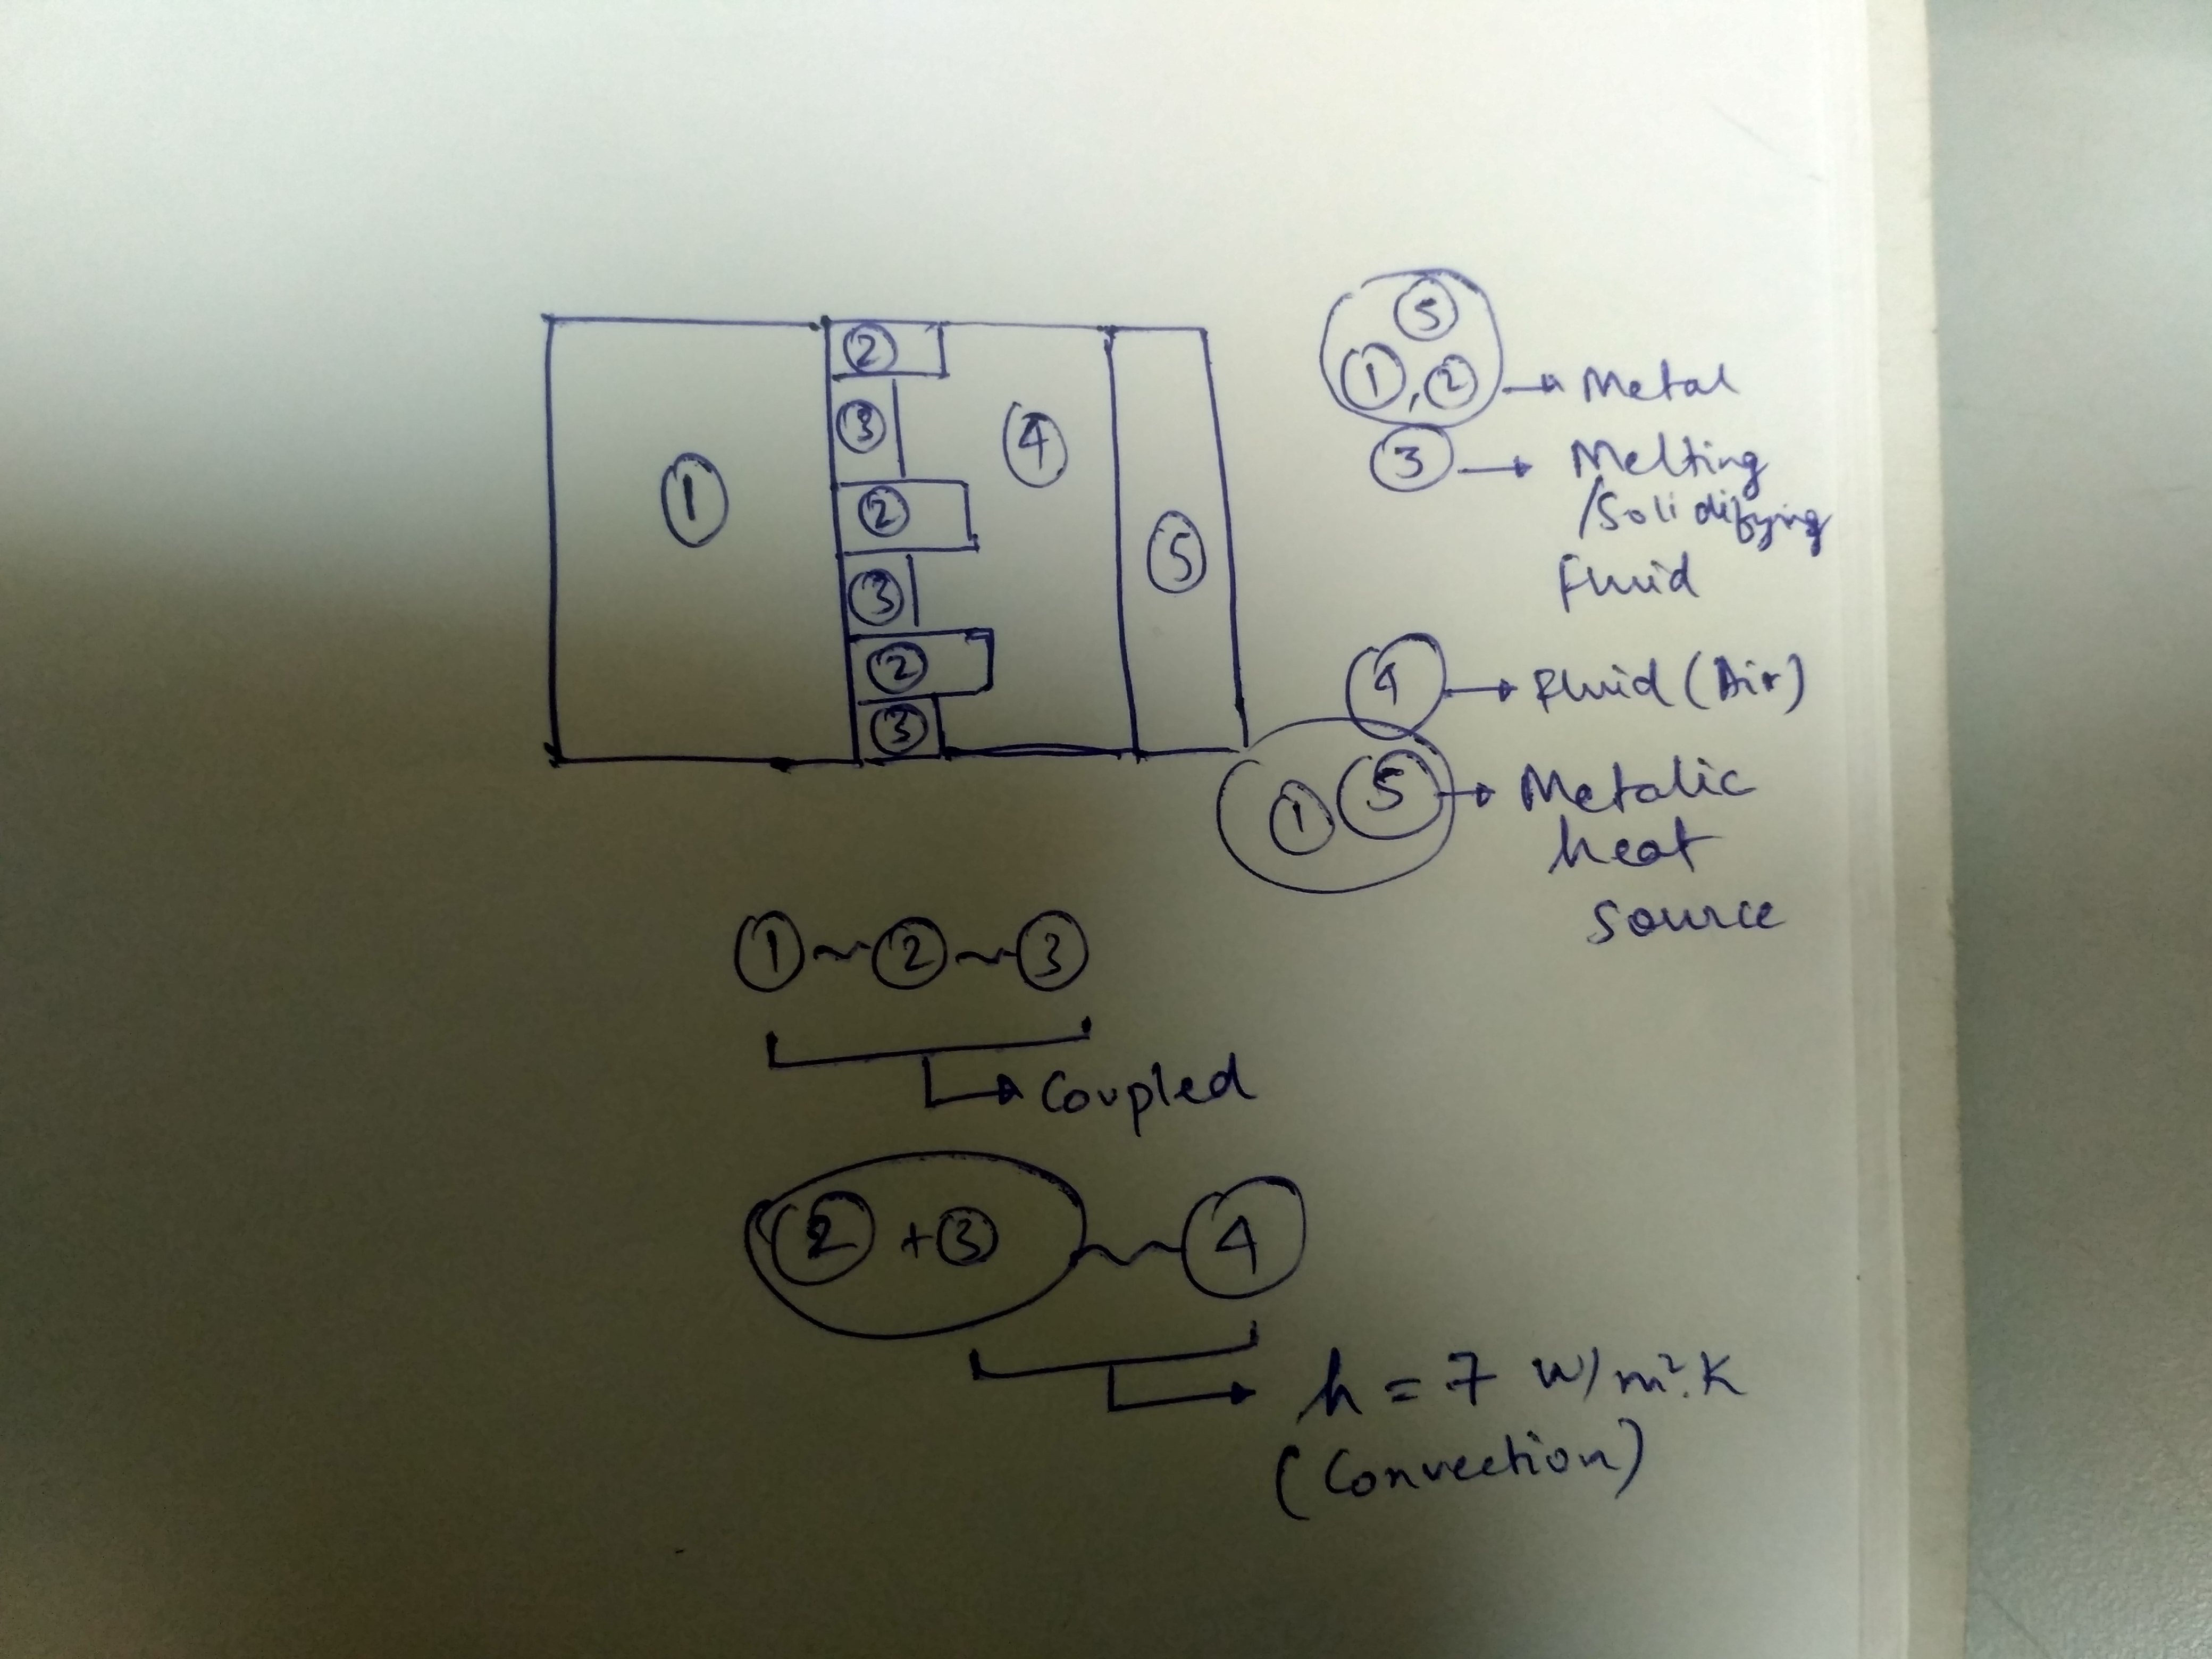 2
3
2
3
2
3
1
4
5
5
1 , 2 → Metal
3 → Melting
/Solidifying
Fluid
4 → Fluid (Air)
1 5 → Metalic
heat
source
1 ~ 2 ~ 3
Coupled
2 + 3 ~ 4
h = 7 W/m².K
(Convection)